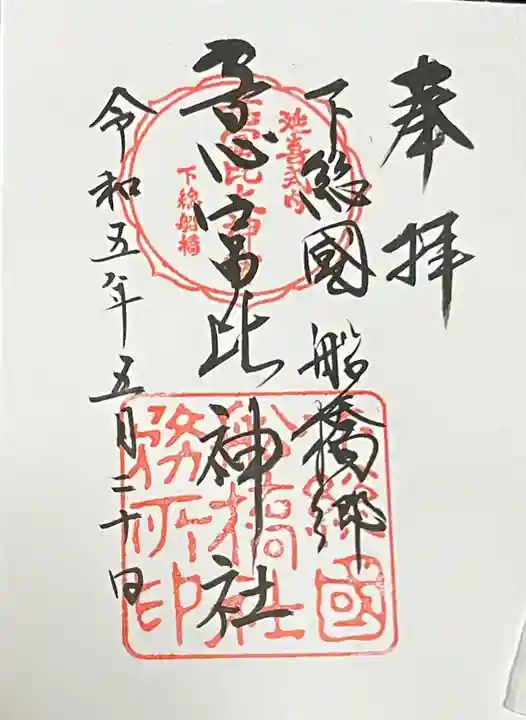 奉拝
下総國船橋郷
意富比神社
令和五年五月二十日
延喜式内
意富比神社
下総船橋
下総國
船橋社
務所印